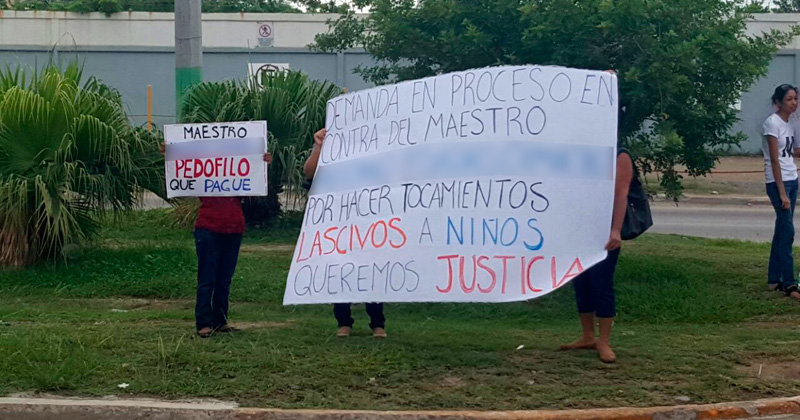 MAESTRO
PEDOFILO
QUE PAGUE
DEMANDA EN PROCESO EN
CONTRA DEL MAESTRO
POR HACER TOCAMIENTOS
LASCIVOS A NIÑOS
QUEREMOS JUSTICIA